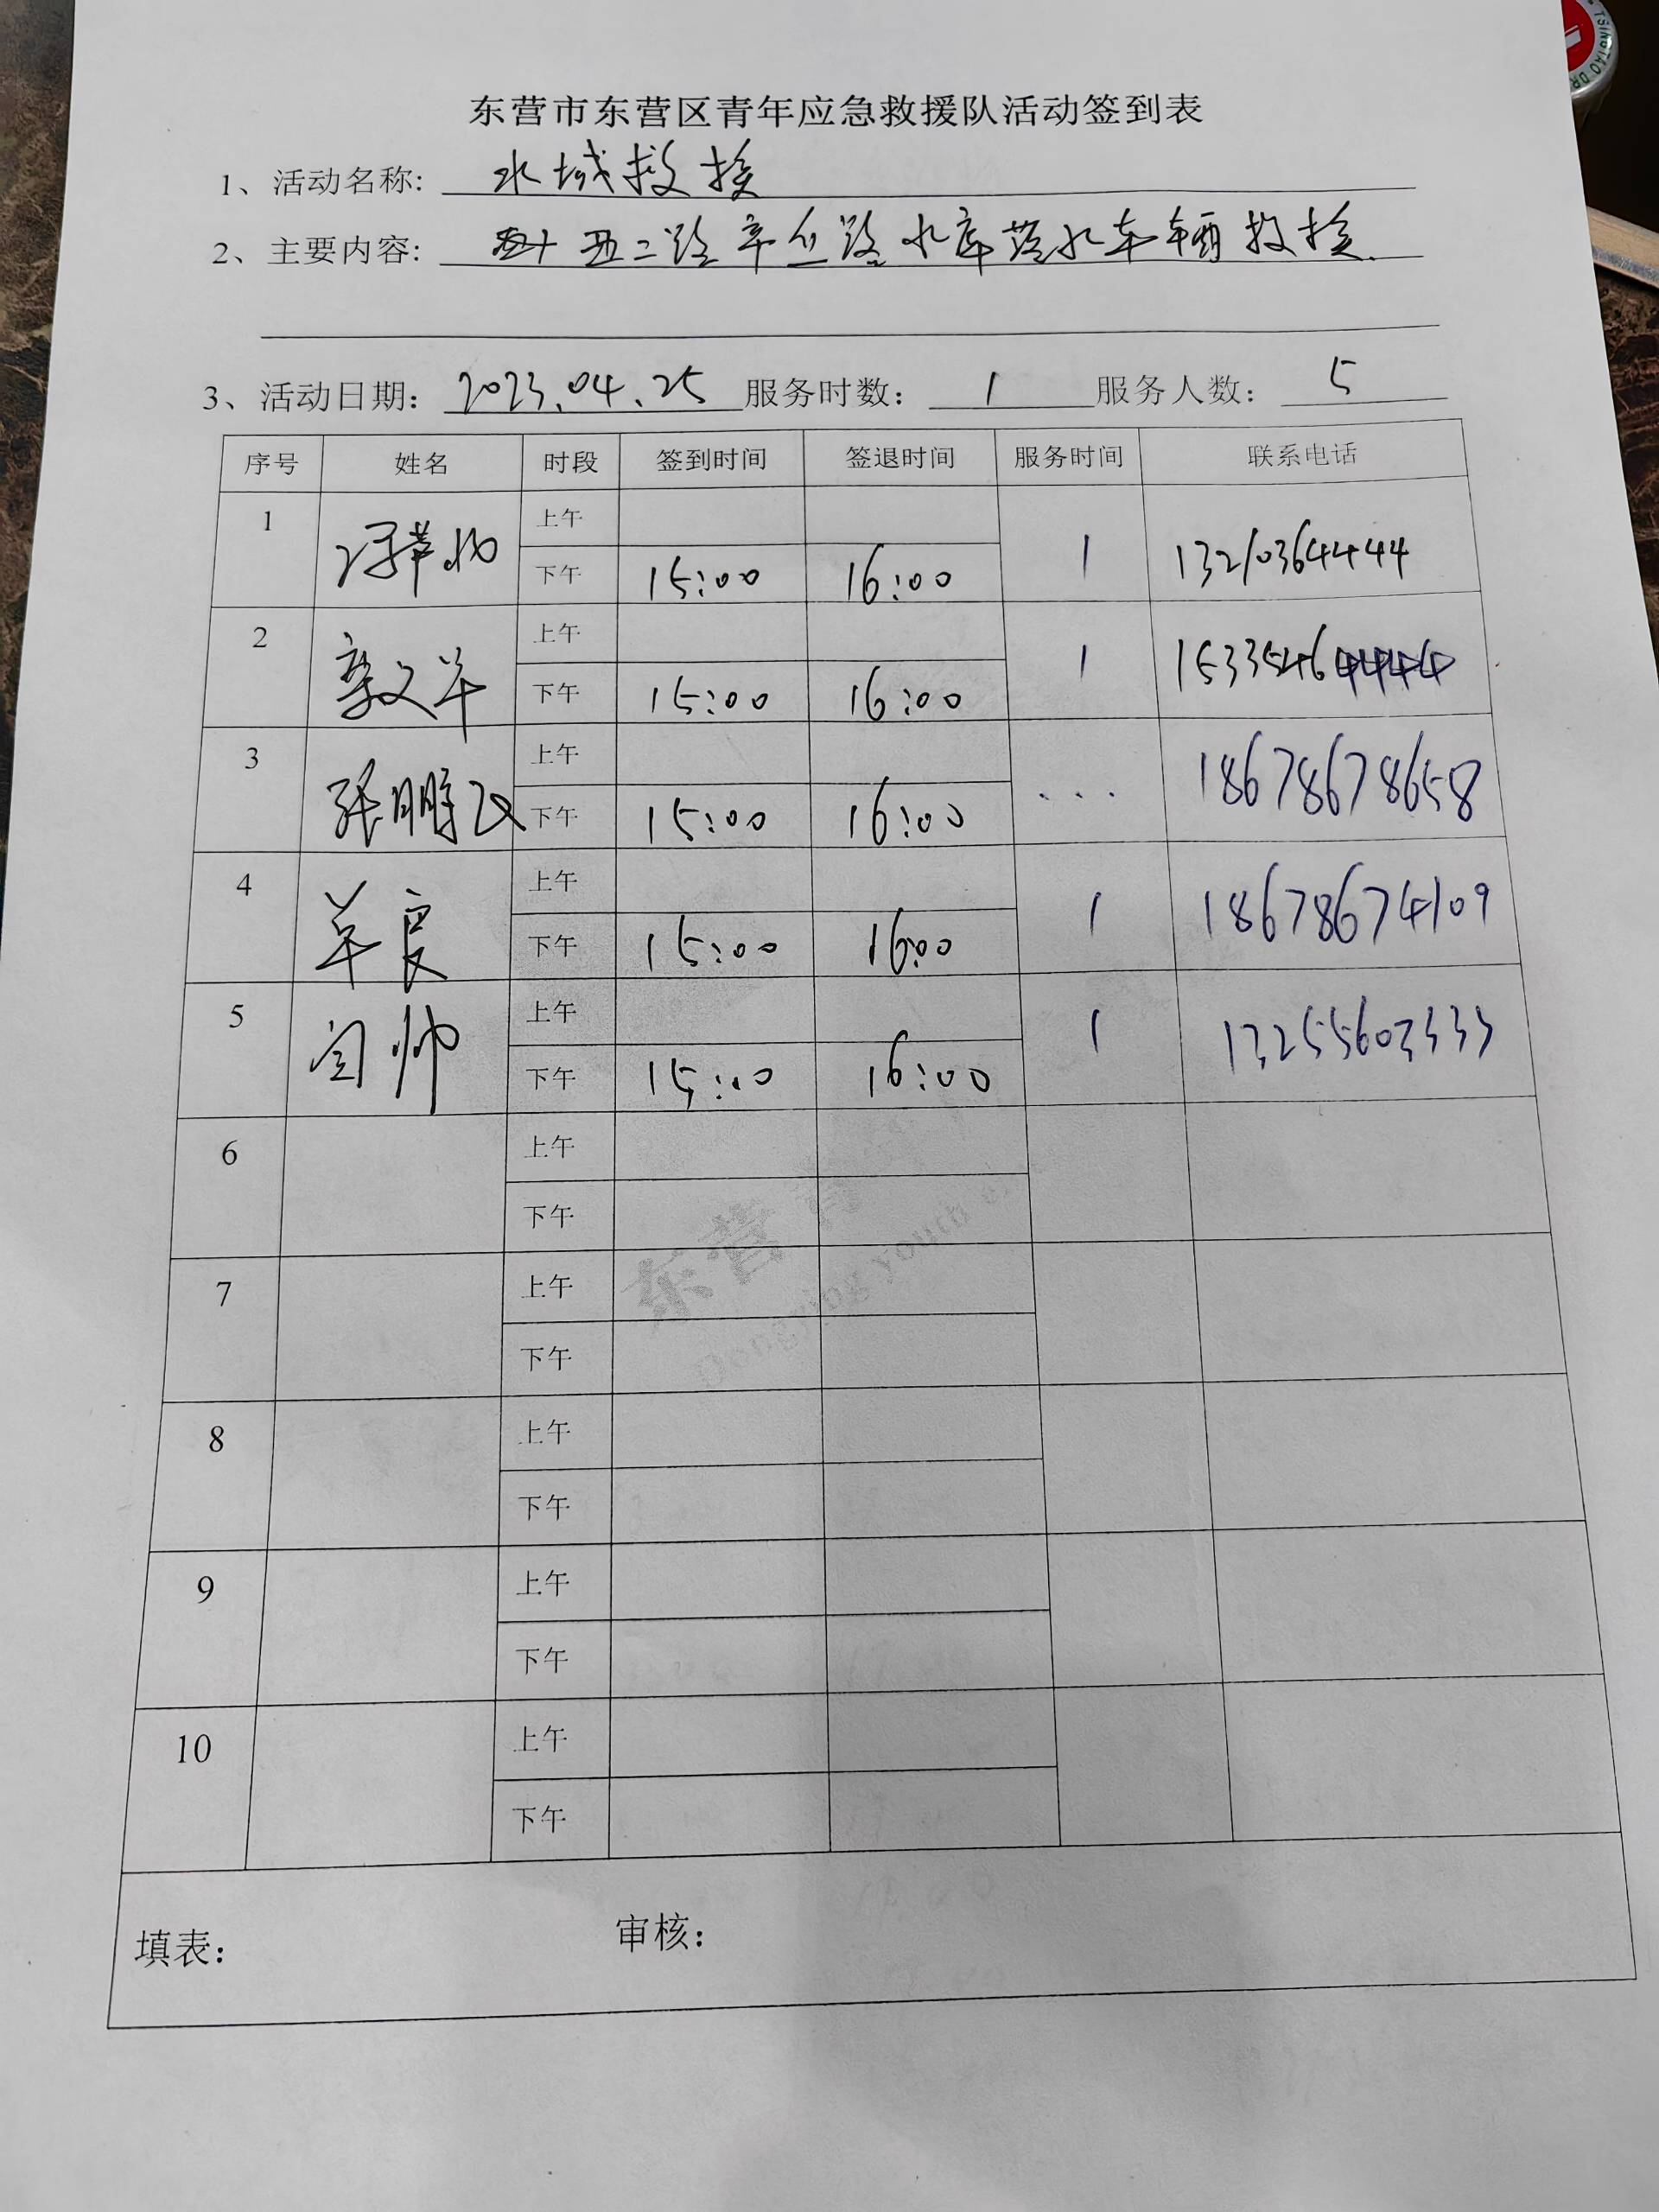 东营市东营区青年应急救援队活动签到表
1、活动名称: 水域救援
2、主要内容: 西二路辛丝路水库落水车辆救援.
3、活动日期: 2023.04.25 服务时数: 1 服务人数: 5
序号 姓名 时段 签到时间 签退时间 服务时间 联系电话
1 上午
下午 15:00 16:00 1 13210364444
2 上午
下午 15:00 16:00 1 15335464444
3 张鹏飞 上午
下午 15:00 16:00 ... 18678678658
4 单良 上午
下午 15:00 16:00 1 18678674109
5 闫帅 上午
下午 15:00 16:00 1 13255603333
6 上午
下午
7 上午
下午
8 上午
下午
9 上午
下午
10 上午
下午
填表: 审核:
东营青
Dongying youth
TSINGTAO